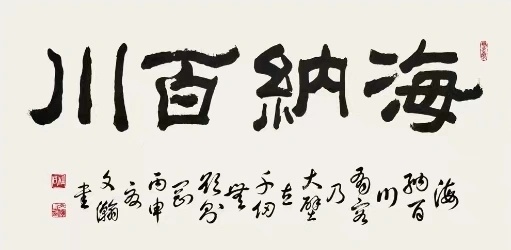 海納百川
海
納百
川
有容
乃
大壁
立
千仞
無
欲則
剛
丙申
文瀚
書